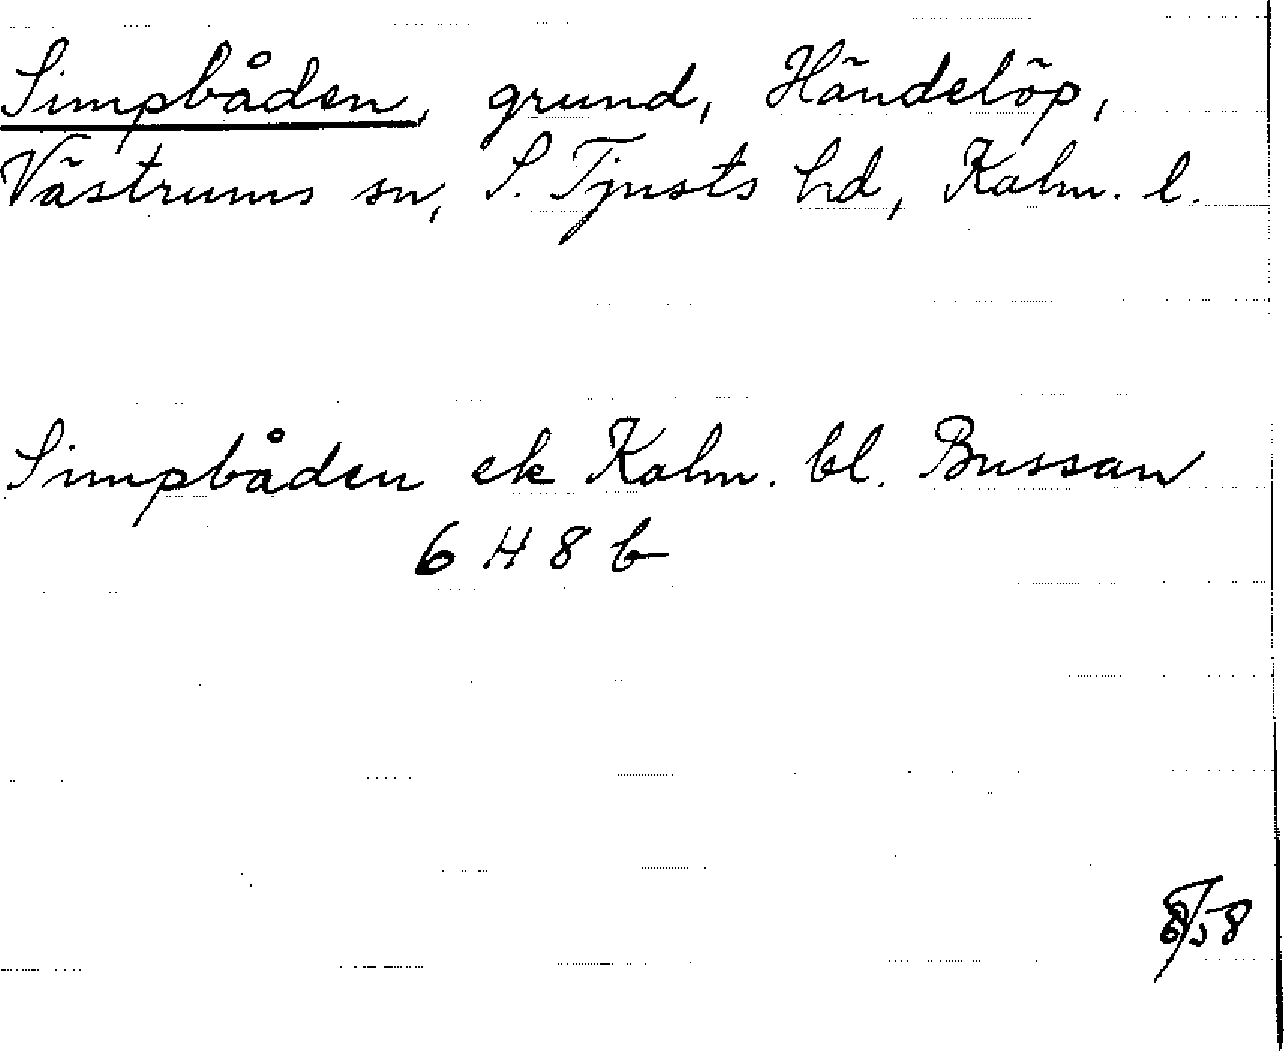 Simpbåden, grund, Händelöp,
Västrums sn, S. Tjusts hd, Kalm. l.
Simpbåden ek Kalm. bl. Bussan
6 H 8 b